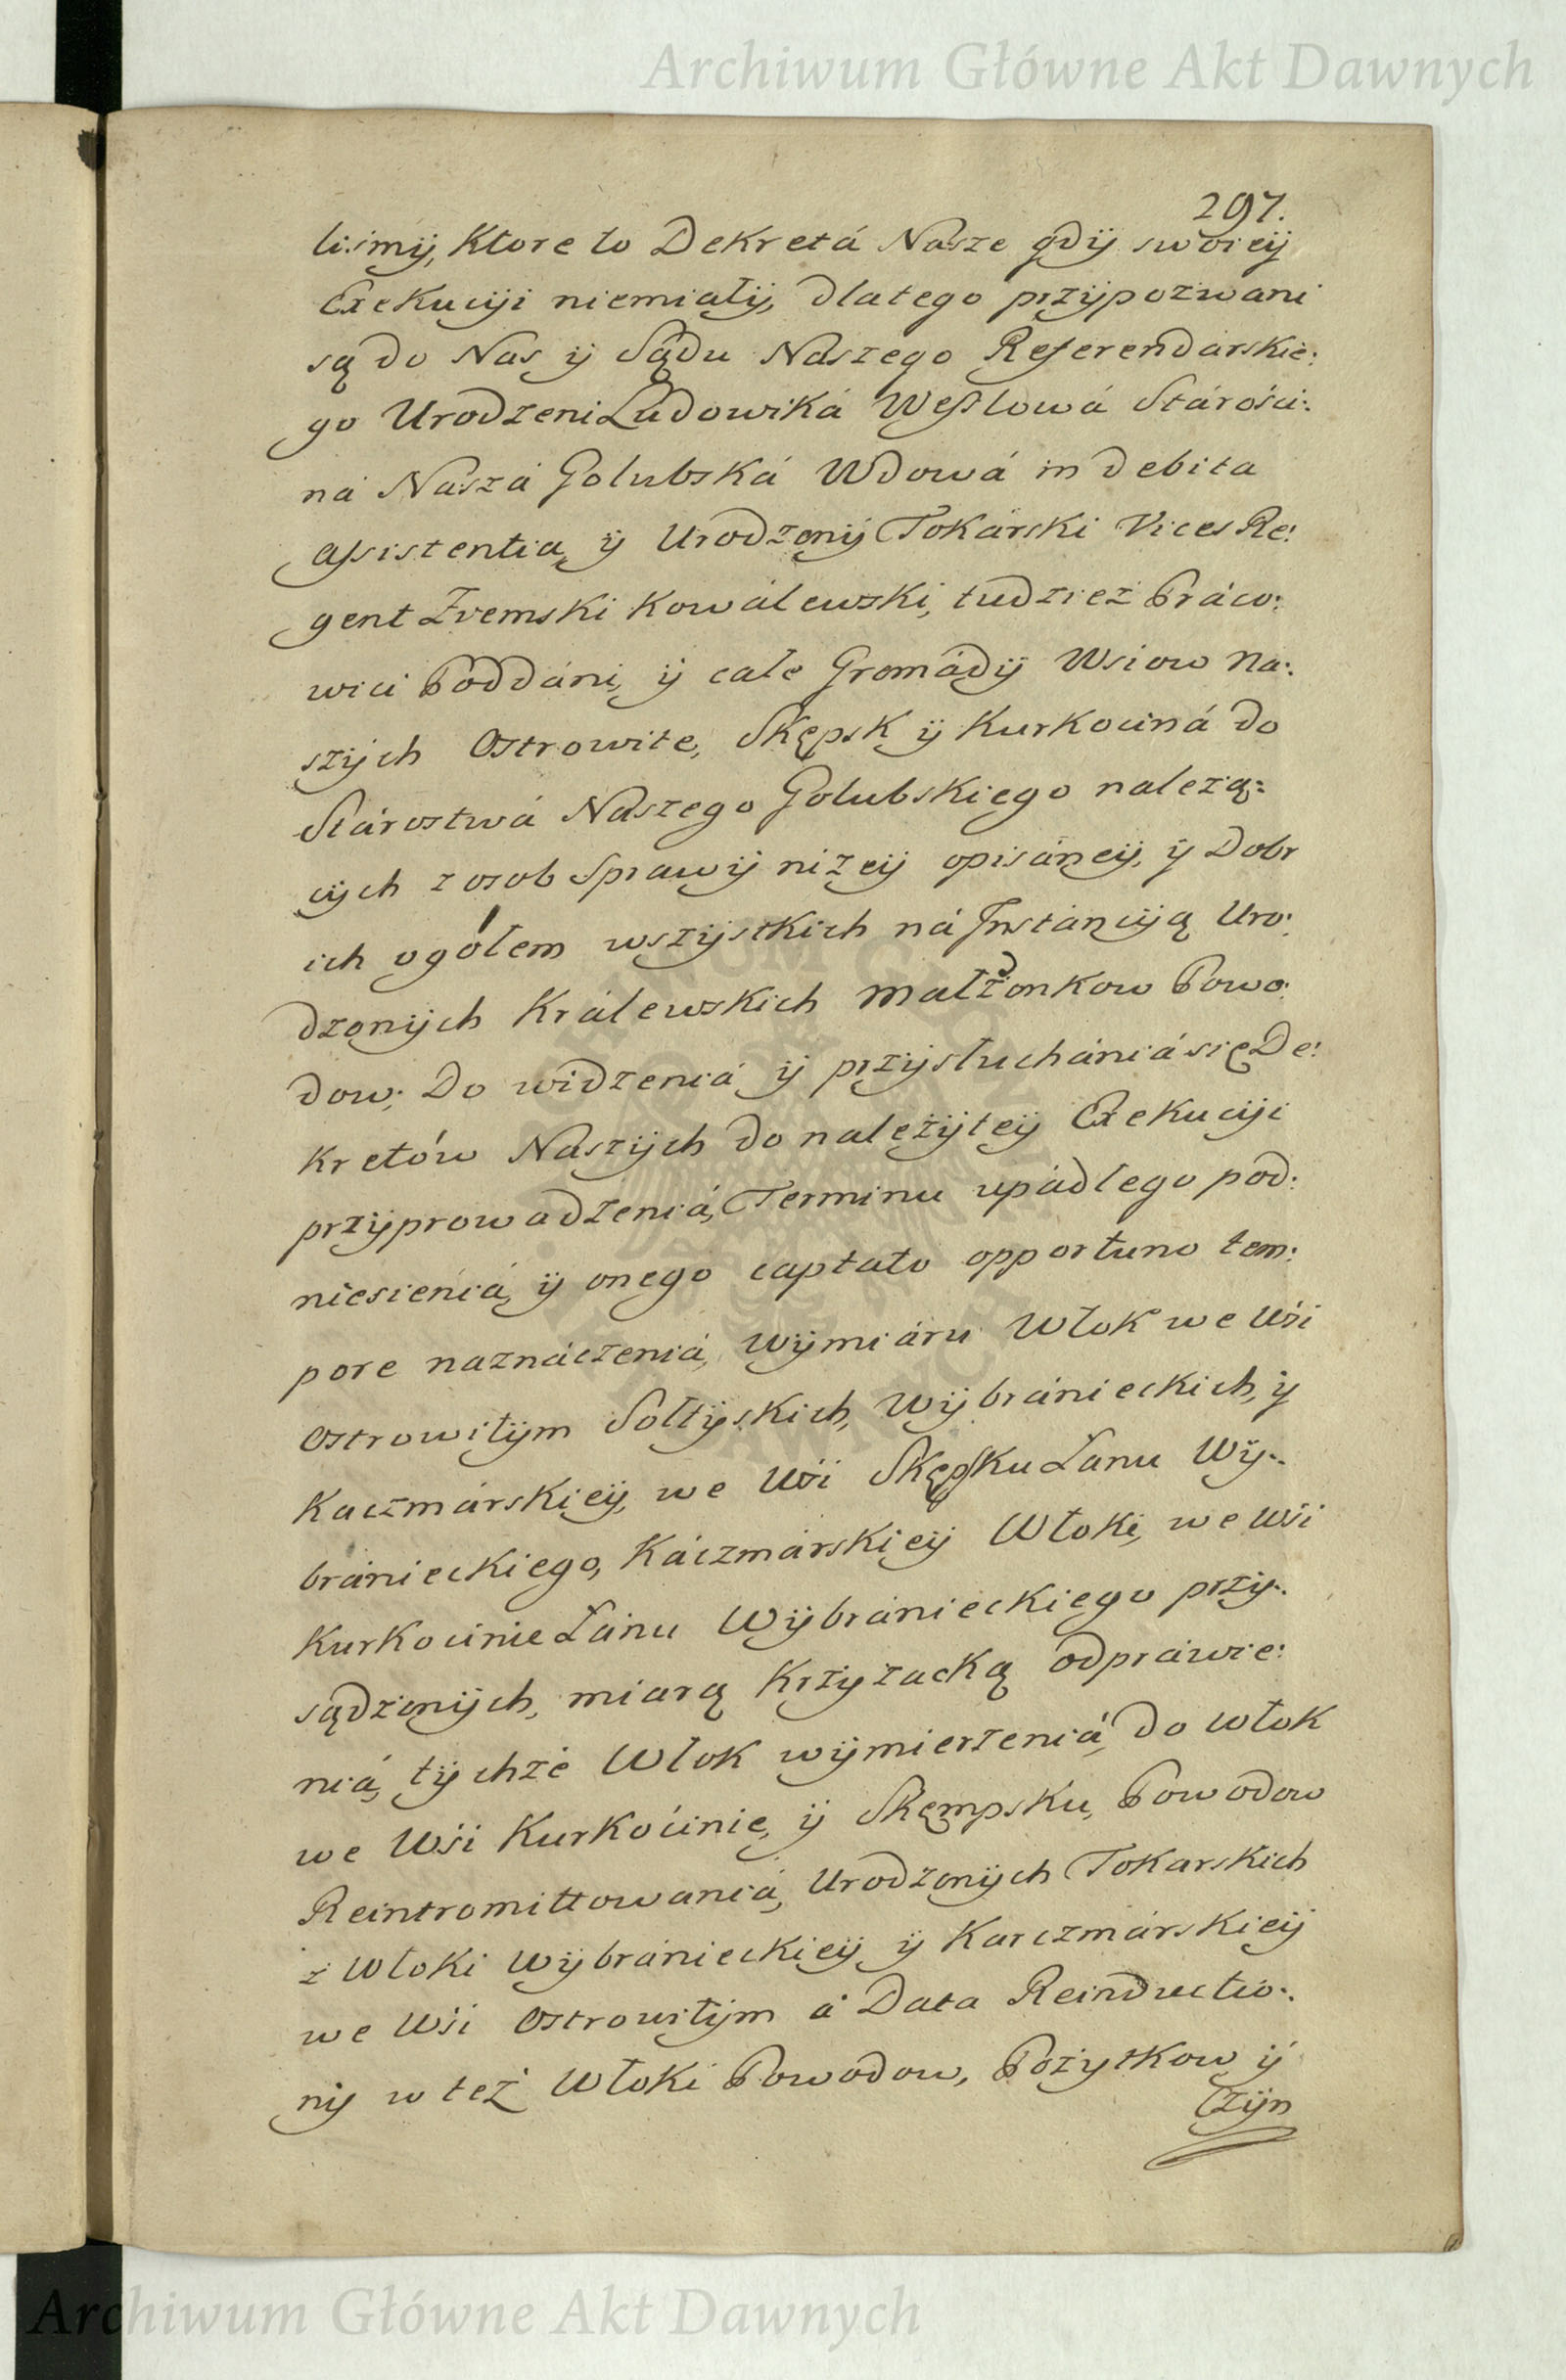 Archiwum Główne Akt Dawnych
297.
liśmÿ, Ktore to Dekretá Nasze gdÿ sworeÿ
Exekucÿi niemiałÿ, dlatego przÿpozwani
są do Nas ÿ Sądu Naszego Referendarskie:
go Urodzeni Ludowiká Wesslowá Stárości:
ná Naszá Golubská Wdowá in debita
assistentia, ÿ Urodzonÿ Tokárski Vices Re:
gent Zremski Kowálewski, tudziez Práco:
wici Poddáni, ÿ całe Gromádÿ Wsiow Na:
szÿch Ostrowite, Skępsk ÿ Kurkociná do
Stárostwá Naszego Golubskiego nalezą:
cÿch z osob Sprawÿ nizeÿ opisáneÿ, ÿ Dobr
ich ogółem wszÿstkich ná Instáncÿą Uro:
dzonÿch Królewskich Małżonkow Powo:
dow; Do widzeniá ÿ przÿsłuchániá się De:
kretów Naszÿch do należÿteÿ Exekucÿi
przÿprowadzeniá, Terminu upádłego pod:
niesieniá, ÿ onego captato opportuno tem:
pore naznáczeniá, Wÿmiáru Włok we Wsi
Ostrowitÿm Sołtÿskich, Wÿbránieckich, ÿ
Kaczmárskieÿ, we Wsi Skępsku Łanu Wÿ:
bránieckiego, Káczmárskieÿ Włoki, we Wsi
Kurkocinie Łánu Wÿbránieckiego przÿ:
sądzonÿch, miarą Krzÿzacką odpráwie:
niá, tÿchże Włok wÿmierzeniá, do włok
we Wsi Kurkocinie, ÿ Skęmpsku, Powodow
Reintromittowaniá, Urodzonÿch Tokarskich
z Włoki Wÿbránieckieÿ ÿ Karczmárskieÿ
we Wsi Ostrowitÿm á Data Reinductio:
nÿ w też Włoki Powodow, Pożÿtkow ÿ
Czÿn
Archiwum Główne Akt Dawnych